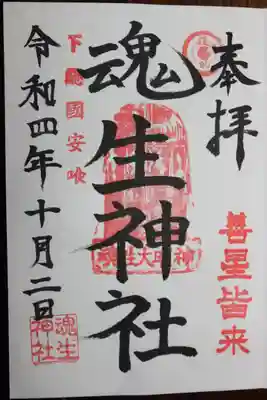 奉拝
善星皆来
魂生神社
下総國安喰
令和四年十月二日
魂生
神社